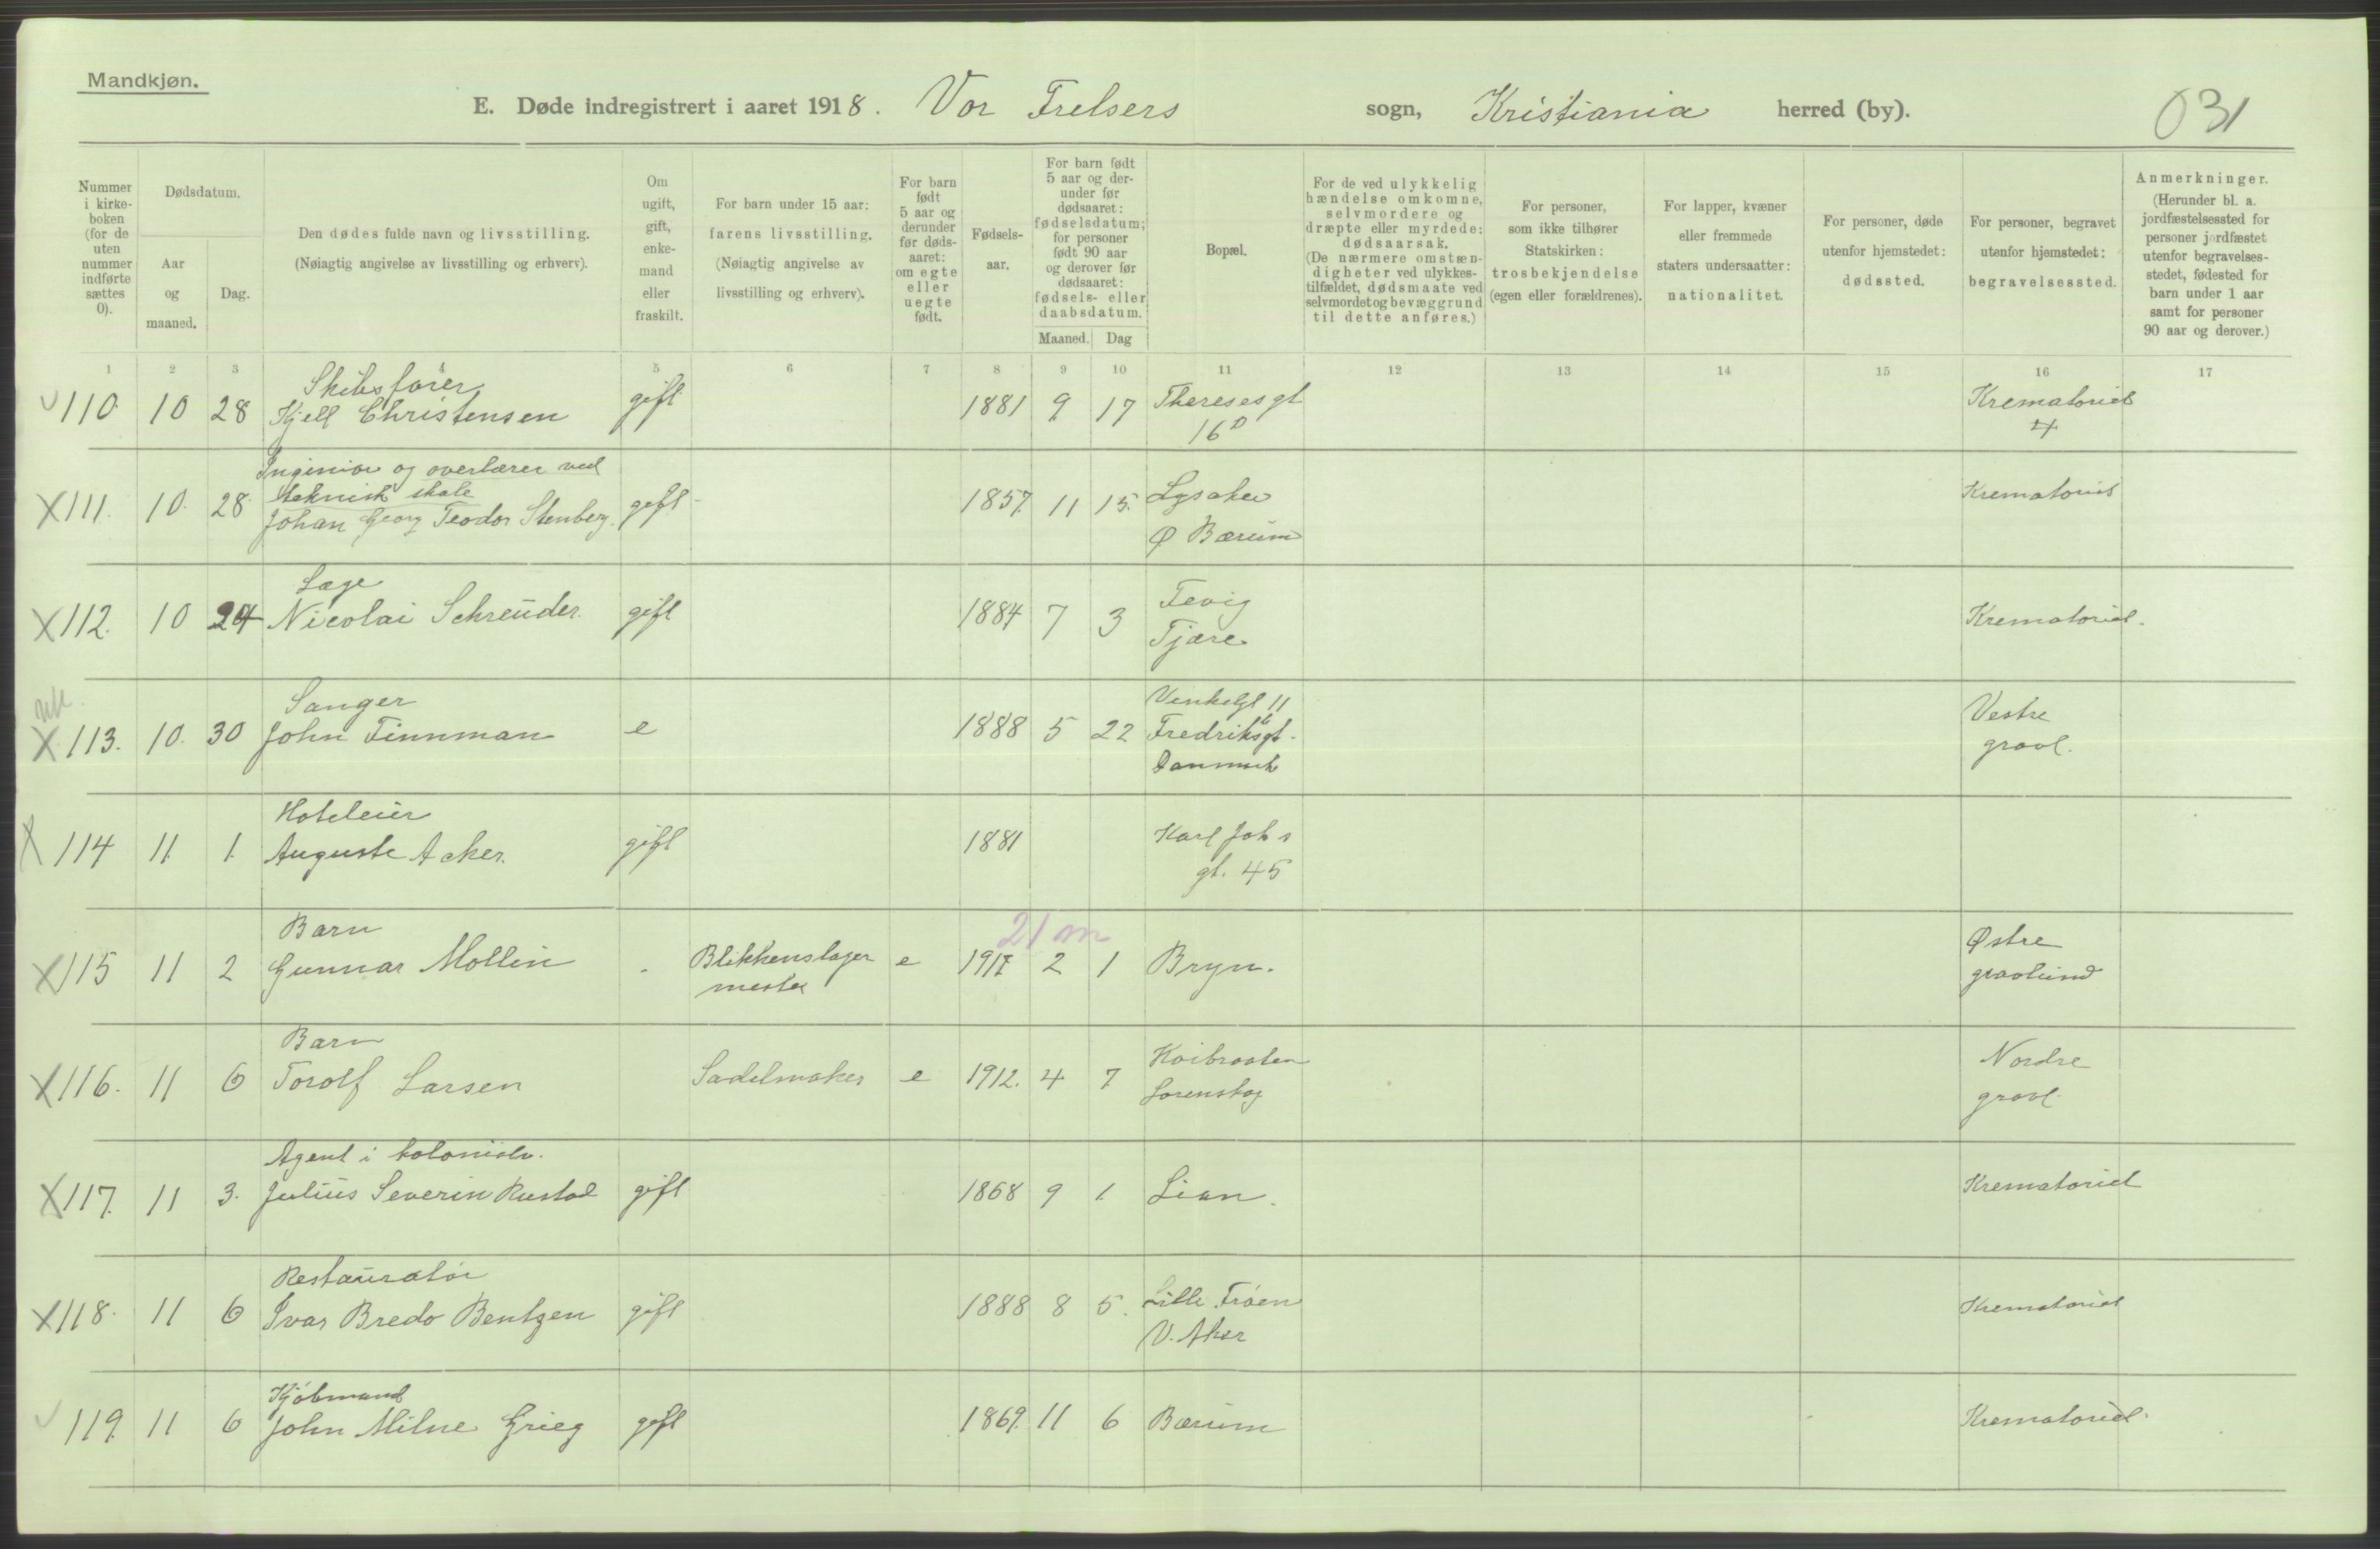 Mandkjøn.
E. Døde indregistrert i aaret 1918. Vor Frelsers sogn, Kristiania herred (by). 031
Nummer i kirkeboken (for de uten nummer indførte sættes 0).
Dødsdatum.
Aar og maaned.
Dag.
Den dødes fulde navn og livsstilling.
(Nøiagtig angivelse av livsstilling og erhverv).
Om ugift, gift, enkemand eller fraskilt.
For barn under 15 aar: farens livsstilling. (Nøiagtig angivelse av livsstilling og erhverv).
For barn født 5 aar og derunder før dødsaaret: om egte eller uegte født.
Fødselsaar.
For barn født 5 aar og derunder før dødsaaret: fødselsdatum; for personer født 90 aar og derover før dødsaaret: fødsels- eller daabsdatum.
Maaned. Dag
Bopæl.
For de ved ulykkelig hændelse omkomne, selvmordere og dræpte eller myrdede: dødsaarsak. (De nærmere omstændigheter ved ulykkestilfældet, dødsmaate ved selvmordet og bevæggrund til dette anføres.)
For personer, som ikke tilhører Statskirken: trosbekjendelse (egen eller forældrenes).
For lapper, kvæner eller fremmede staters undersaatter: nationalitet.
For personer, døde utenfor hjemstedet: dødssted.
For personer, begravet utenfor hjemstedet: begravelsessted.
Anmerkninger. (Herunder bl. a. jordfæstelsessted for personer jordfæstet utenfor begravelsesstedet, fødested for barn under 1 aar samt for personer 90 aar og derover.)
1 2 3 4 5 6 7 8 9 10 11 12 13 14 15 16 17
Skibsfører
110. 10 28 Kjell Christensen gift 1881 9 17 Theresesgt Krematoriet
16 D 4
Ingeniør og overlærer ved
teknisk skole
X 111. 10. 28. Johan Georg Teodor Stenberg. gift 1857. 11 15. Lysaker Krematoriet
Ø Bærum
Læge
X 112. 10 24 Nicolai Schreuder. gift 1884 7 3 Fevig Krematoriet.
Tjære
Sanger Vinkelgt 11
X 113. 10. 30 John Finnman e 1888 5 22 Fredriksgt. Vestre
Danmark gravl.
Hoteleier
X 114 11. 1. Auguste Acker. gift 1881 Karl Johs
gt. 45
Barn 21 m
X 115 11 2 Gunnar Mollin Blikkenslager e 1917 2 1 Bryn. Østre
mester gravlund
Barn
X 116. 11 6 Torolf Larsen Sadelmaker e 1912. 4 7 Nordre
Lørenskog gravl.
Agent i kolonialv.
X 117. 11 3. Julius Severin Rustad gift 1868 9 1 Lian. Krematoriet
Restauratør
X 118. 11 6 Ivar Bredo Bentzen gift 1888 8 5. Lille Frøen Krematoriet
V. Aker
Kjøbmand
119. 11 6 John Milne Grieg gift 1869. 11 6 Bærum Krematoriet.